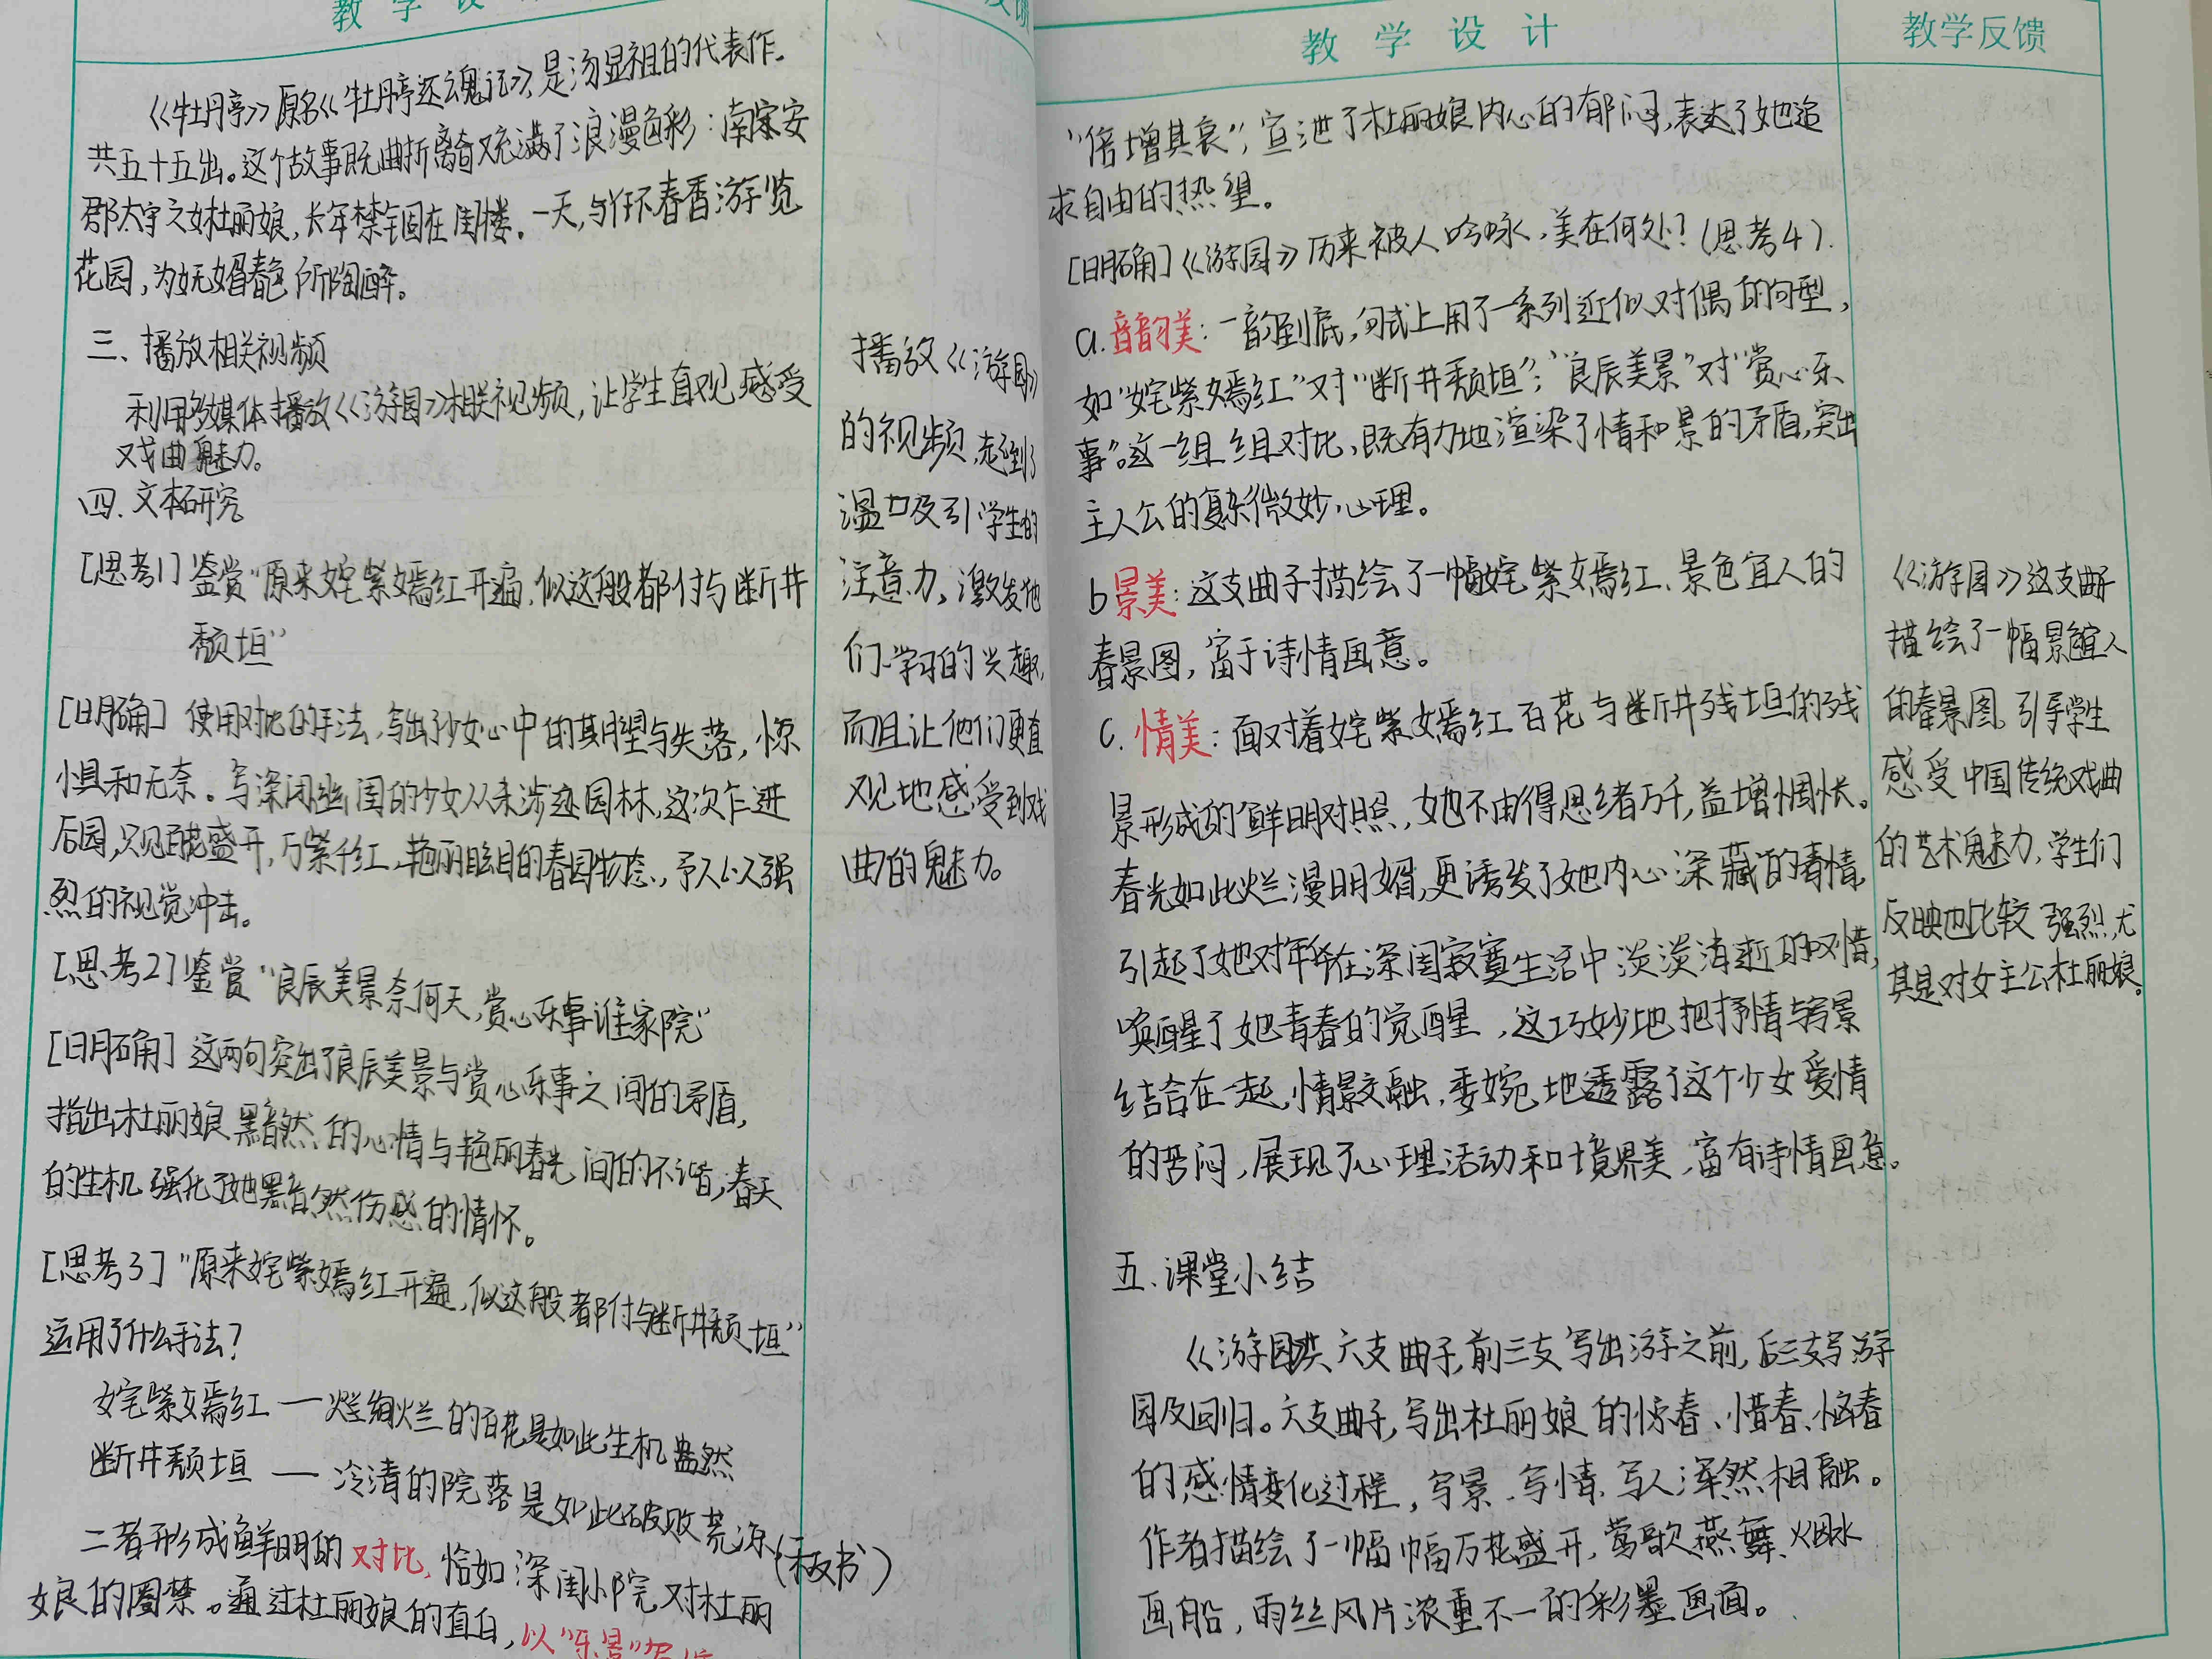 教 学 设
《牡丹亭》原名《牡丹亭还魂记》,是汤显祖的代表作.
共五十五出。这个故事既曲折离奇又充满了浪漫色彩:南宋安
郡太守之女杜丽娘,长年禁锢在闺楼。一天,与伴环春香游览
花园,为妩媚春色所陶醉。
三、播放相关视频
利用多媒体播放《游园》相关视频,让学生直观感受
戏曲魅力。
四.文本研究
[思考1] 鉴赏“原来姹紫嫣红开遍,似这般都付与断井
颓垣”
[明确] 使用对比的手法,写出少女心中的期望与失落,惊
惧和无奈。写深闭幽闺的少女从未涉迹园林,这次乍进
后园,只见百花盛开,万紫千红,艳丽眩目的春园物态,予人以强
烈的视觉冲击。
[思考2] 鉴赏“良辰美景奈何天,赏心乐事谁家院”
[明确] 这两句突出了良辰美景与赏心乐事之间的矛盾,
指出杜丽娘黯然的心情与艳丽春光间的不谐,春天
的生机强化了她黯然伤感的情怀。
[思考3] “原来姹紫嫣红开遍,似这般都付与断井颓垣”
运用了什么手法?
姹紫嫣红 — 绚烂的百花是如此生机盎然
断井颓垣 — 冷清的院落是如此破败荒凉(板书)
二者形成鲜明的对比,恰如深闺小院对杜丽
娘的圈禁。通过杜丽娘的直白,以“乐景”写
播放《游园》
的视频,起到了
吸引学生的
注意力,激发他
们学习的兴趣,
而且让他们更直
观地感受到戏
曲的魅力。
教 学 设 计
“倍增其哀”,宣泄了杜丽娘内心的郁闷,表达了她追
求自由的热望。
[明确]《游园》历来被人吟咏,美在何处?(思考4).
a.音韵美:一韵到底,句式上用了一系列近似对偶的句型,
如“姹紫嫣红”对“断井颓垣”;“良辰美景”对“赏心乐
事”。这一组组对比,既有力地渲染了情和景的矛盾,突出
主人公的复杂微妙心理。
b景美:这支曲子描绘了一幅姹紫嫣红、景色宜人的
春景图,富于诗情画意。
c.情美:面对着姹紫嫣红百花与断井残垣的残
景形成的鲜明对照,她不由得思绪万千,益增惆怅。
春光如此烂漫明媚,更诱发了她内心深藏的春情,
引起了她对年华在深闺寂寞生活中淡淡消逝的叹惜,
唤醒了她青春的觉醒,这巧妙地把抒情与写景
结合在一起,情景交融,委婉地透露了这个少女爱情
的苦闷,展现了心理活动和境界美,富有诗情画意。
五.课堂小结
《游园》共六支曲子,前三支写出游之前,后三支写游
园及回归。六支曲子,写出杜丽娘的惊春、惜春、恼春
的感情变化过程,写景、写情、写人浑然相融。
作者描绘了一幅幅万花盛开,莺歌燕舞、烟水
画船,雨丝风片浓重不一的彩墨画面。
教学反馈
《游园》这支曲子
描绘了一幅景色宜人
的春景图,引导学生
感受中国传统戏曲
的艺术魅力,学生们
反映也比较强烈,尤
其是对女主公杜丽娘。